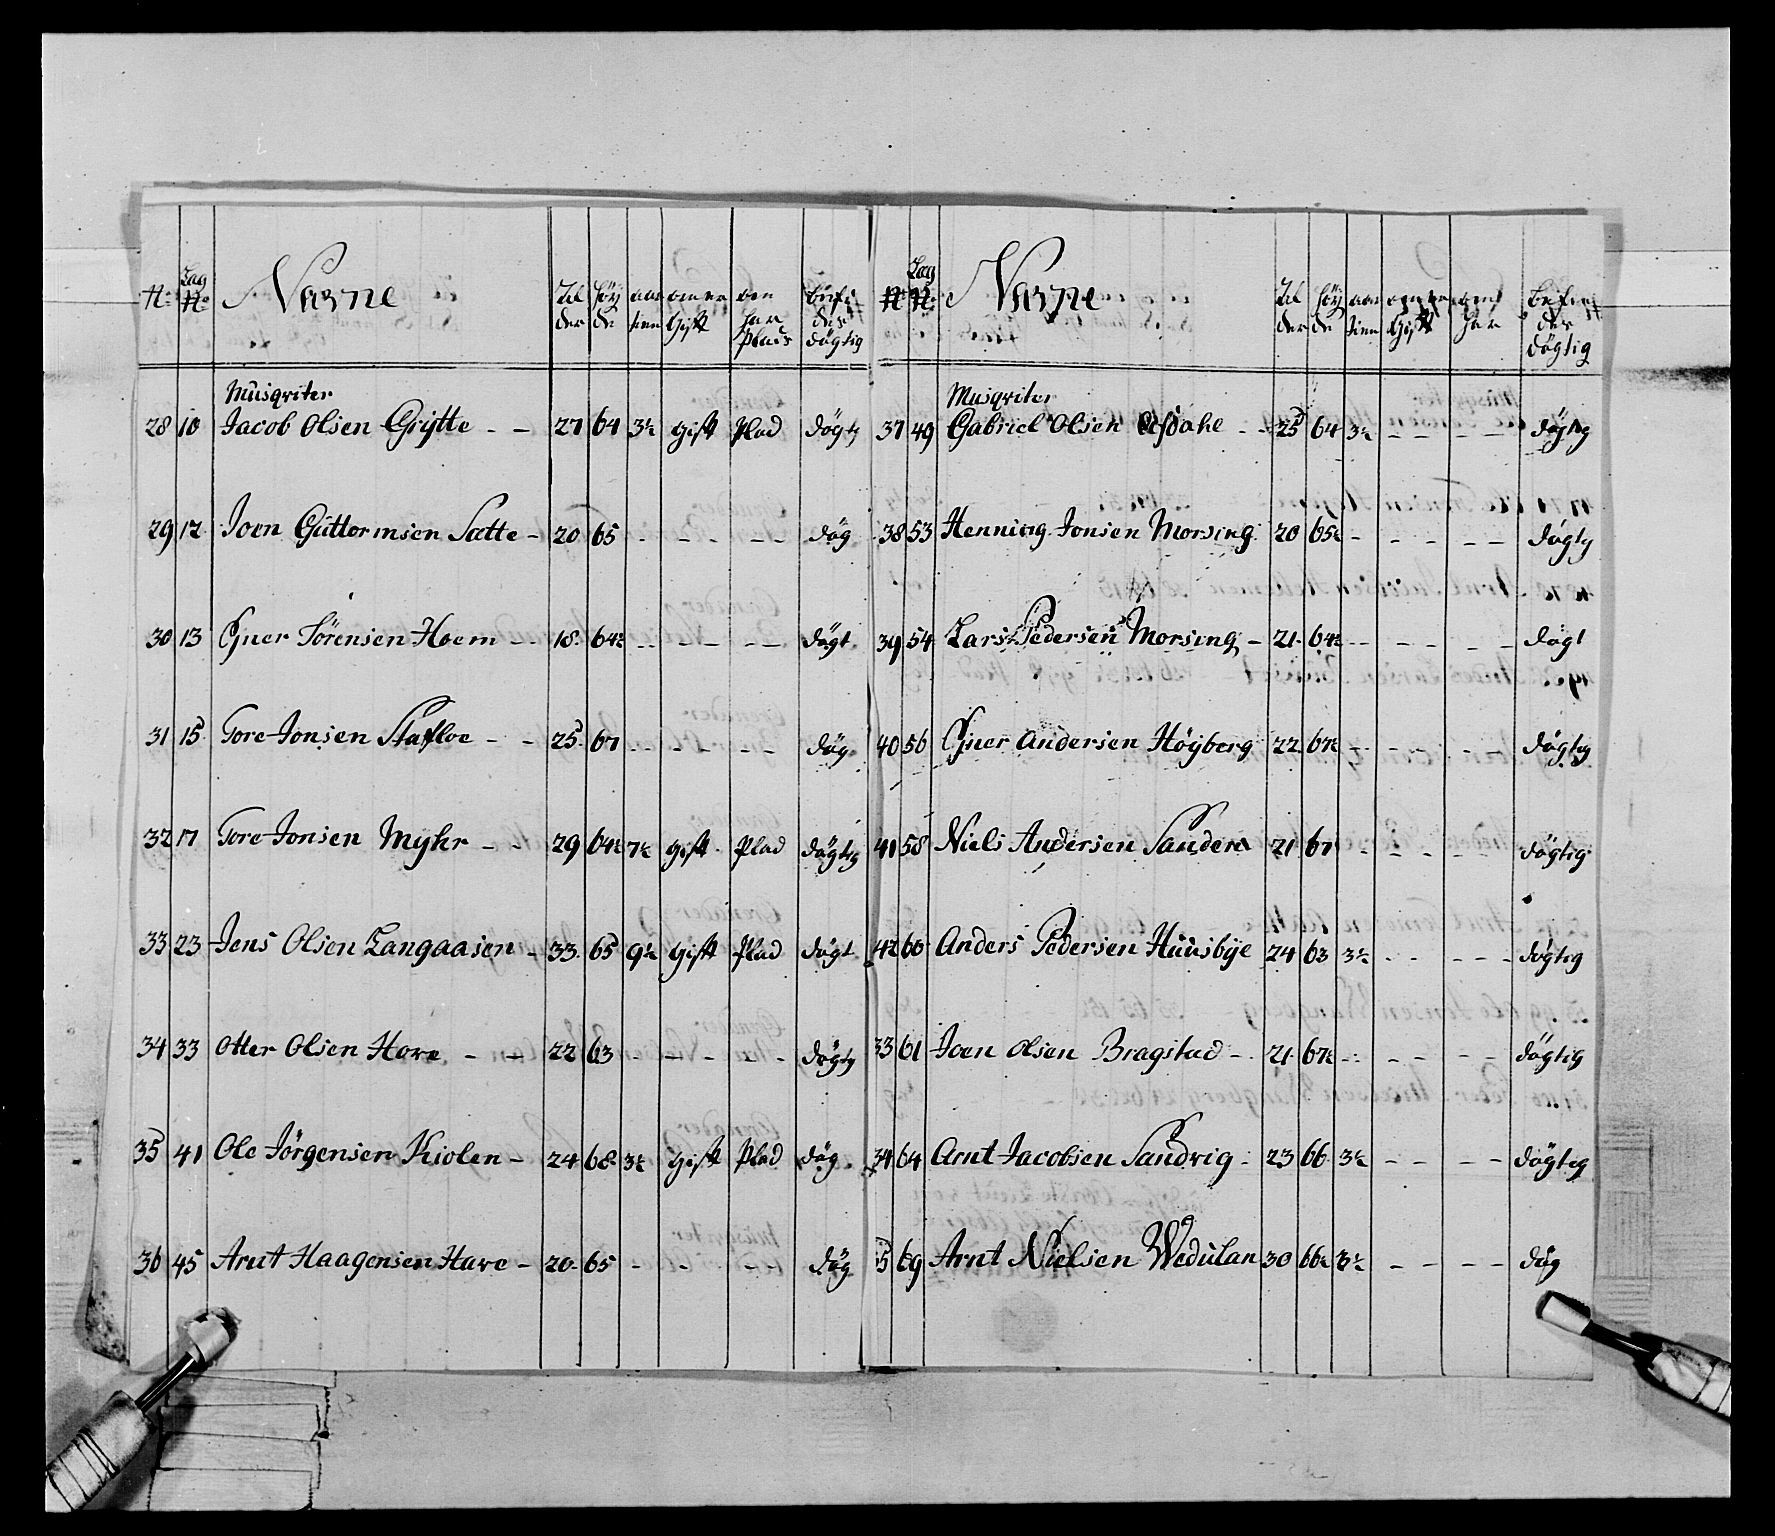 N: Lag N: Navne Alder Høyde aar tienn om er Gift om har Plads befindes døgtig
Musqviter
28 10 Jacob Olsen Grytte - - 27 64 3½ Gift Plad døgty
29 12 Joen Guttormsen Sætte - 20 65 - - - - - døg
30 13 Ejner Sørensen Hoem - - 18 64½ - - - - - - døgt
31 15 Tore Jonsen Stafloe - - 25 67 - - - - - døg
32 17 Tore Jonsen Myhr - - 29 64½ 7½ Gift Plad døgtig
33 23 Jens Olsen Langaasen - 33 65 9½ Gift Plad døgt
34 33 Otter Olsen Have - - 22 63 - - - - - døgty
35 41 Ole Jørgensen Kiølen - 24 68 3½ Gift Plad døg
36 45 Arnt Haagensen Have - 20 65 - - - - døg
N: Lag N: Navne Alder Høyde aar tienn om er Gift om har befindes døgtig
Musqviter
37 49 Gabriel Olsen - - 25 64 3½ - - - - døgtig
38 53 Henning Jonsen Morsing 20 65½ - - - - - døgty
39 54 Lars Pedersen Morsing - 21 64½ - - - - - - døgt
40 56 Ejner Andersen Høyberg 22 67½ - - - - døgtig
41 58 Niels Andersen Sandera 21 67 - - - - - døgtig
42 60 Anders Pedersen Huusbye 24 63 3½ - - - - - døgtig
33 61 Joen Olsen Bragstad - 21 67½ - - - - - døgtig
34 64 Arnt Jacobsen Sandvig - 23 66 3½ - - - - døgtig
35 69 Arnt Nielsen Wedulan 30 66½ 3½ - - - - døg